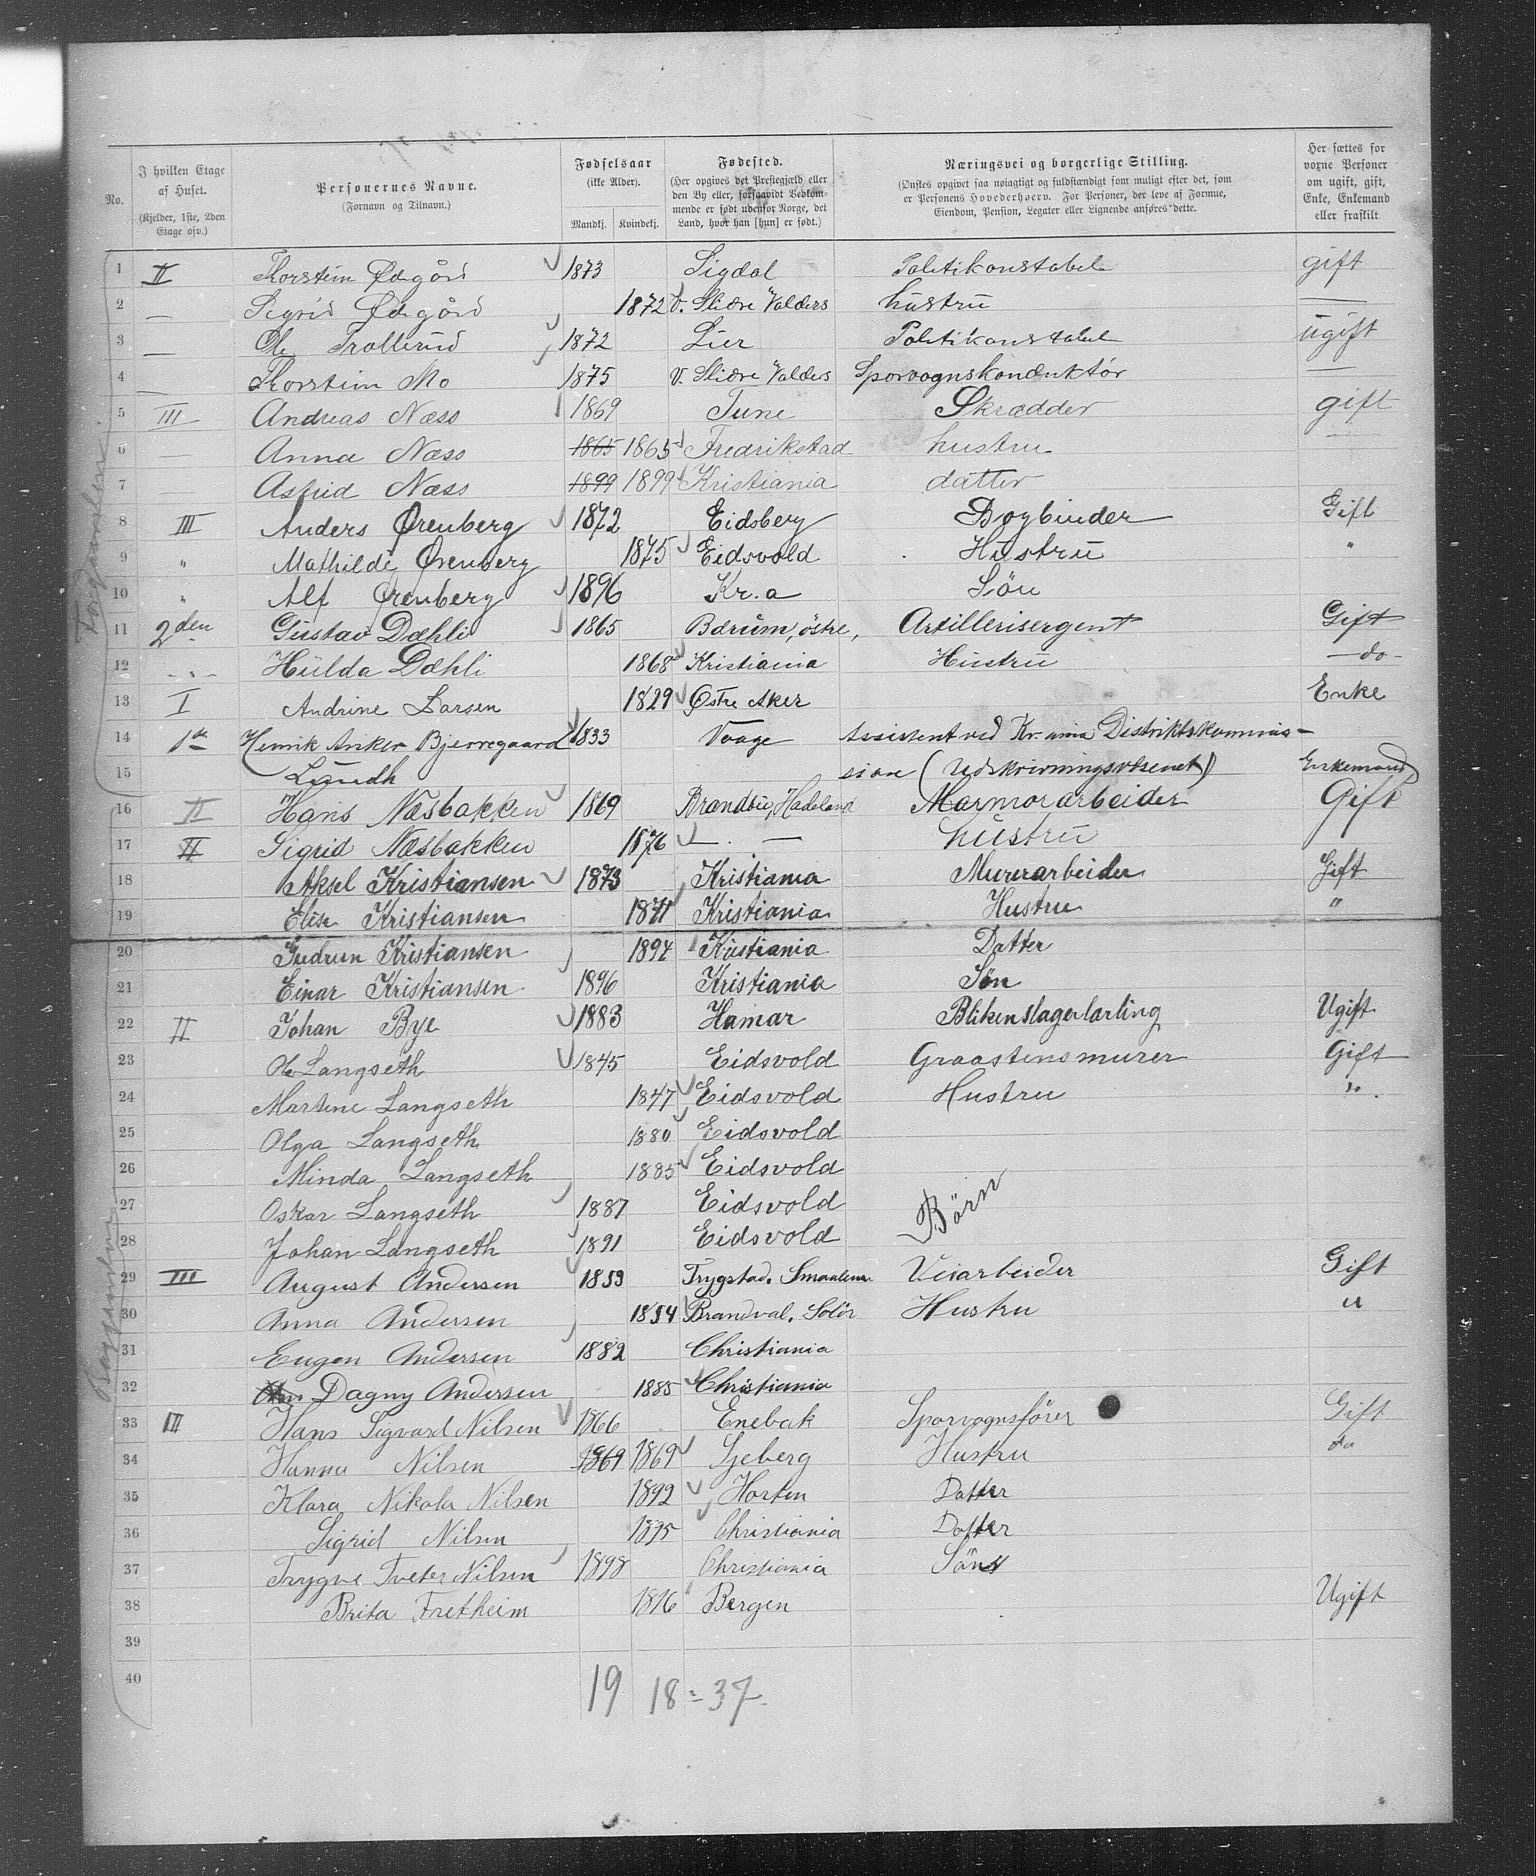 No.
I hvilken Etage af Huset.
(Kjelder, 1ste, 2den Etage osv.)
Personernes Navne.
(Fornavn og Tilnavn.)
Fødselsaar
(ikke Alder).
Mandkj. Kvindekj.
Fødested.
(Her opgives det Prestegjæld eller den By eller, forsaavidt Vedkommende er født udenfor Norge, det Land, hvor han [hun] er født.)
Næringsvei og borgerlige Stilling.
(Ønskes opgivet saa nøiagtigt og fuldstændigt som muligt efter det, som er Personens Hovederhverv. For Personer, der leve af Formue, Eiendom, Pension, Legater eller Lignende anføres dette.
Her sættes for voxne Personer om ugift, gift, Enke, Enkemand eller fraskilt
1 II Thorstein Ødegård 1873 Sigdal Politikonstabel gift
2 — Sigrid Ødegård 1872 V. Slidre Valders hustru —
3 — Ole Trollerud 1872 Lier Politikonstabel ugift
4 — Thorstein Mo 1875 V. Slidre Valders Sporvognskonduktör —
5 III Andreas Næss 1869 Tune Skrædder gift
6 — Anna Næss 1865 1865 Fredrikstad hustru —
7 — Astrid Næss 1899 1899 Kristiania datter
8 III Anders Ørenberg 1872 Eidsberg Bogbinder Gift
9 " Mathilde Ørenberg 1875 Eidsvold Hustru "
10 " Alf Ørenberg 1896 Kr.a Sön
11 2den Gustav Dæhli 1865 Bærum, östre, Artillerisergent Gift
12 - " - Hulda Dæhli 1868 Kristiania Hustru — do -
13 I Andrine Larsen 1829 Østre Aker Enke
14 1ste Henrik Anker Bjerregaard 1833 Vaage Assistent ved Kr.ania Distriktskommis-
15 Lundh sion (Udskrivningsvæsenet) Enkemand
16 II Hans Næsbakken 1869 Brandbu, Hadeland Marmorarbeider Gift
17 II Sigrid Næsbakken 1876 — . — hustru
18 Aksel Kristiansen 1873 Kristiania Murerarbeider Gift
19 Elise Kristiansen 1871 Kristiania Hustru "
20 Gudrun Kristiansen 1894 Kristiania Datter
21 Einar Kristiansen 1896 Kristiania Søn
22 II Johan Bye 1883 Hamar Blikenslagerlærling Ugift
23 Ole Langseth 1845 Eidsvold Graastensmurer Gift
24 Martine Langseth 1847 Eidsvold Hustru "
25 Olga Langseth 1880 Eidsvold
26 Minda Langseth 1885 Eidsvold
27 Oskar Langseth 1887 Eidsvold Börn
28 Johan Langseth 1891 Eidsvold
29 III August Andersen 1859 Trygstad. Smaalene Veiarbeider Gift
30 Anna Andersen 1854 Brandval. Solör Hustru "
31 Eugen Andersen 1882 Christiania
32 Dagny Andersen 1885 Christiania
33 III Hans Sigvard Nilsen 1866 Enebak Sporvognsfører Gift
34 Hanna Nilsen 1869 1869 Sjeberg Hustru do
35 Klara Nikola Nilsen 1892 Horten Datter
36 Sigrid Nilsen 1895 Christiania Datter
37 Trygve Tveter Nilsen 1898 Christiania Söns
38 Brita Fretheim 1876 Bergen Ugift
39
40
19 18 = 37.